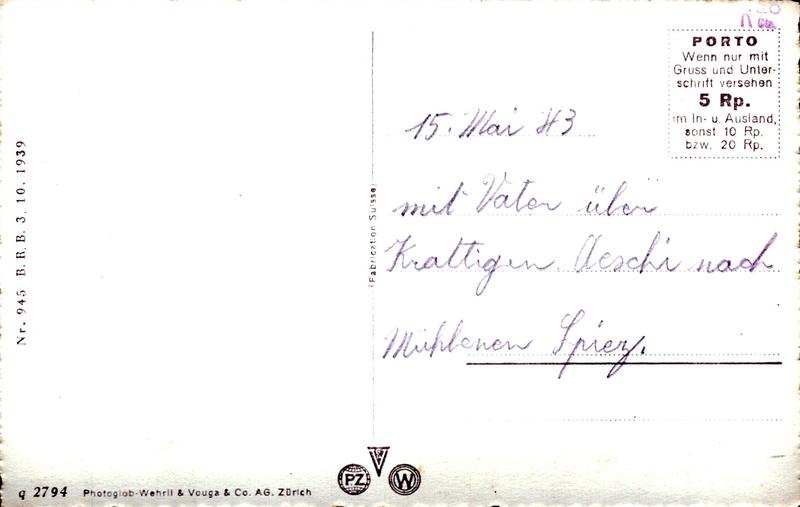 PORTO
Wenn nur mit
Gruss und Unter-
schrift versehen
5 Rp.
im In- u. Ausland,
sonst 10 Rp.
bzw. 20 Rp.
15. Mai 43
mit Vater über
Krattigen Aeschi nach
Mühlenen Spiez.
(Fabrication Suisse)
Nr. 945 B. R. B. 3. 10. 1939
q 2794 Photoglob-Wehrli & Vouga & Co. AG. Zürich
PZ
W